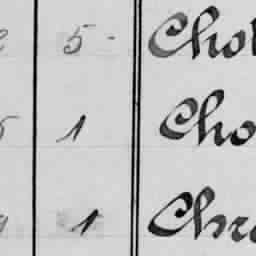 5 - Chol
1 Cho
1 Chr